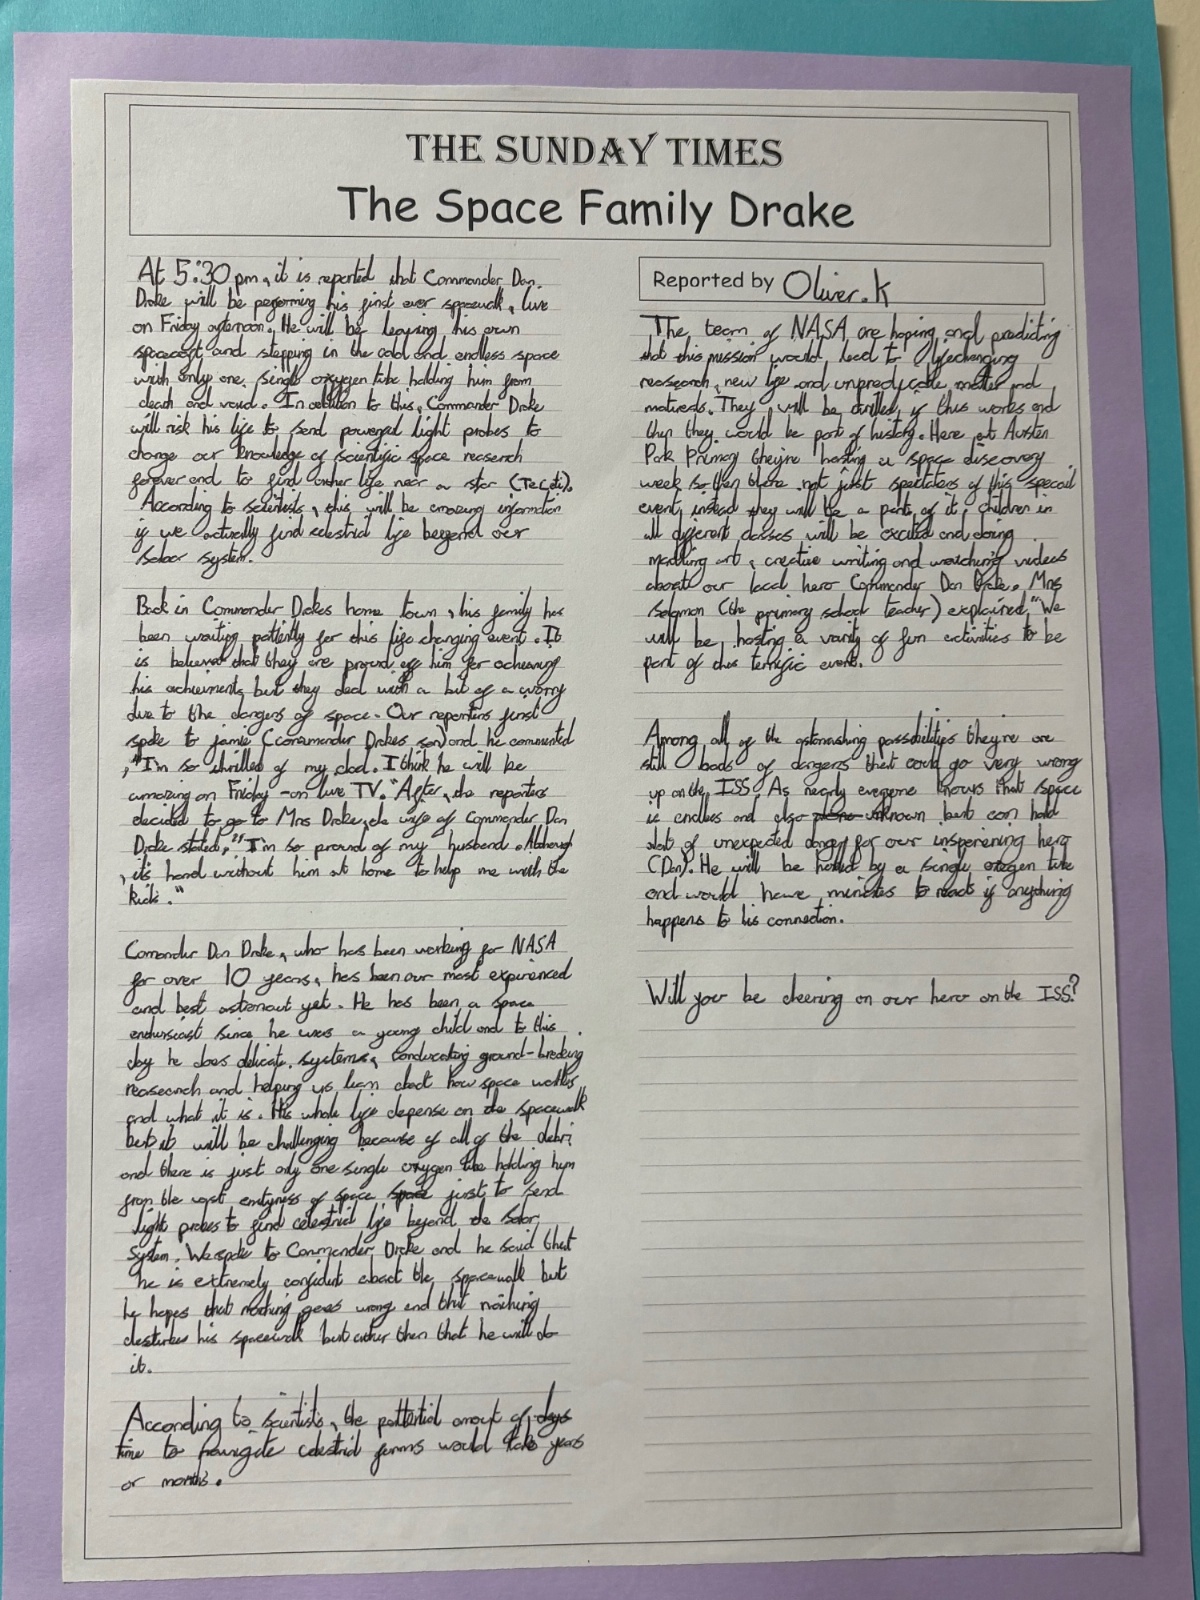 THE SUNDAY TIMES
The Space Family Drake
At 5:30 pm, it is reported that Commander Dan
Drake will be performing his first ever spacewalk, live
on Friday afternoon. He will be leaving his own
spacecraft and stepping in the cold and endless space
with only one single oxygen tube holding him from
death and void. In addition to this, Commander Drake
will risk his life to send powerful light probes to
change our knowledge of scientific space reaserch
forever and to find other life near a star
According to scientists, this will be amazing information
if we actually find celestrial life beyond our
Solar system.
Back in Commander Drakes home town, his family has
been waiting for this life changing event. It
is believed that they are proud of him for achieving
his but they deal with a bit of a worry
due to the dangers of space. Our reporters first
spoke to Jamie (Commander Drakes son) and he commented
,"I'm so thrilled of my dad. I think he will be
amazing on Friday -on live TV." After, the reporters
decided to go to Mrs Drake, wife of Commander Dan
Drake stated, "I'm so proud of my husband. Although
, it's hard without him at home to help me with the
kids."
Comander Dan Drake, who has been working for NASA
for over 10 years, has been our most
and best yet. He has been a space
since he was a young child and to this
day he does delicate systems, ground-breking
reasearch and helping us learn about how space works
and what it is. His whole life depense on the spacewalk
but it will be challenging because of all of the debri
and there is just only one single oxygen tube holding him
from the vast of space space just to send
light probes to find celestrial life beyond the Solar
System. We spoke to Commander Drake and he said that
he is extremely about the spacewalk but
he hopes that nothing goes wrong and that nothing
his spacewalk but other then that he will do
it.
According to scientists, the of days
time to celestrial forms would take years
or months.
Reported by Oliver.K
The team of NASA are hoping and predicting
that this mission would lead to lifechanging
reasearch, new life and matter and
They will be thrilled if this works and
then they would be part of history. Here at Austen
Park Primary they're hosting a space discovery
week so then there not just spectaters of this special
event, instead they will be a part of it. Children in
all different classes will be excited and doing
art, creative writing and watching videos
about our local hero Commander Dan Drake. Mrs
Solomon (the primary school teacher) explained, "We
will be hosting a of fun activities to be
part of this terrific event.
Among all of the astonishing they're are
still of dangers that could go very wrong
up on the ISS. As nearly everyone knows that space
is endless and also but can hold
of unexpected danger for our hero
(Dan). He will be by a single tube
and would have minutes to react if anything
happens to his connection.
Will you be cheering on our hero on the ISS?